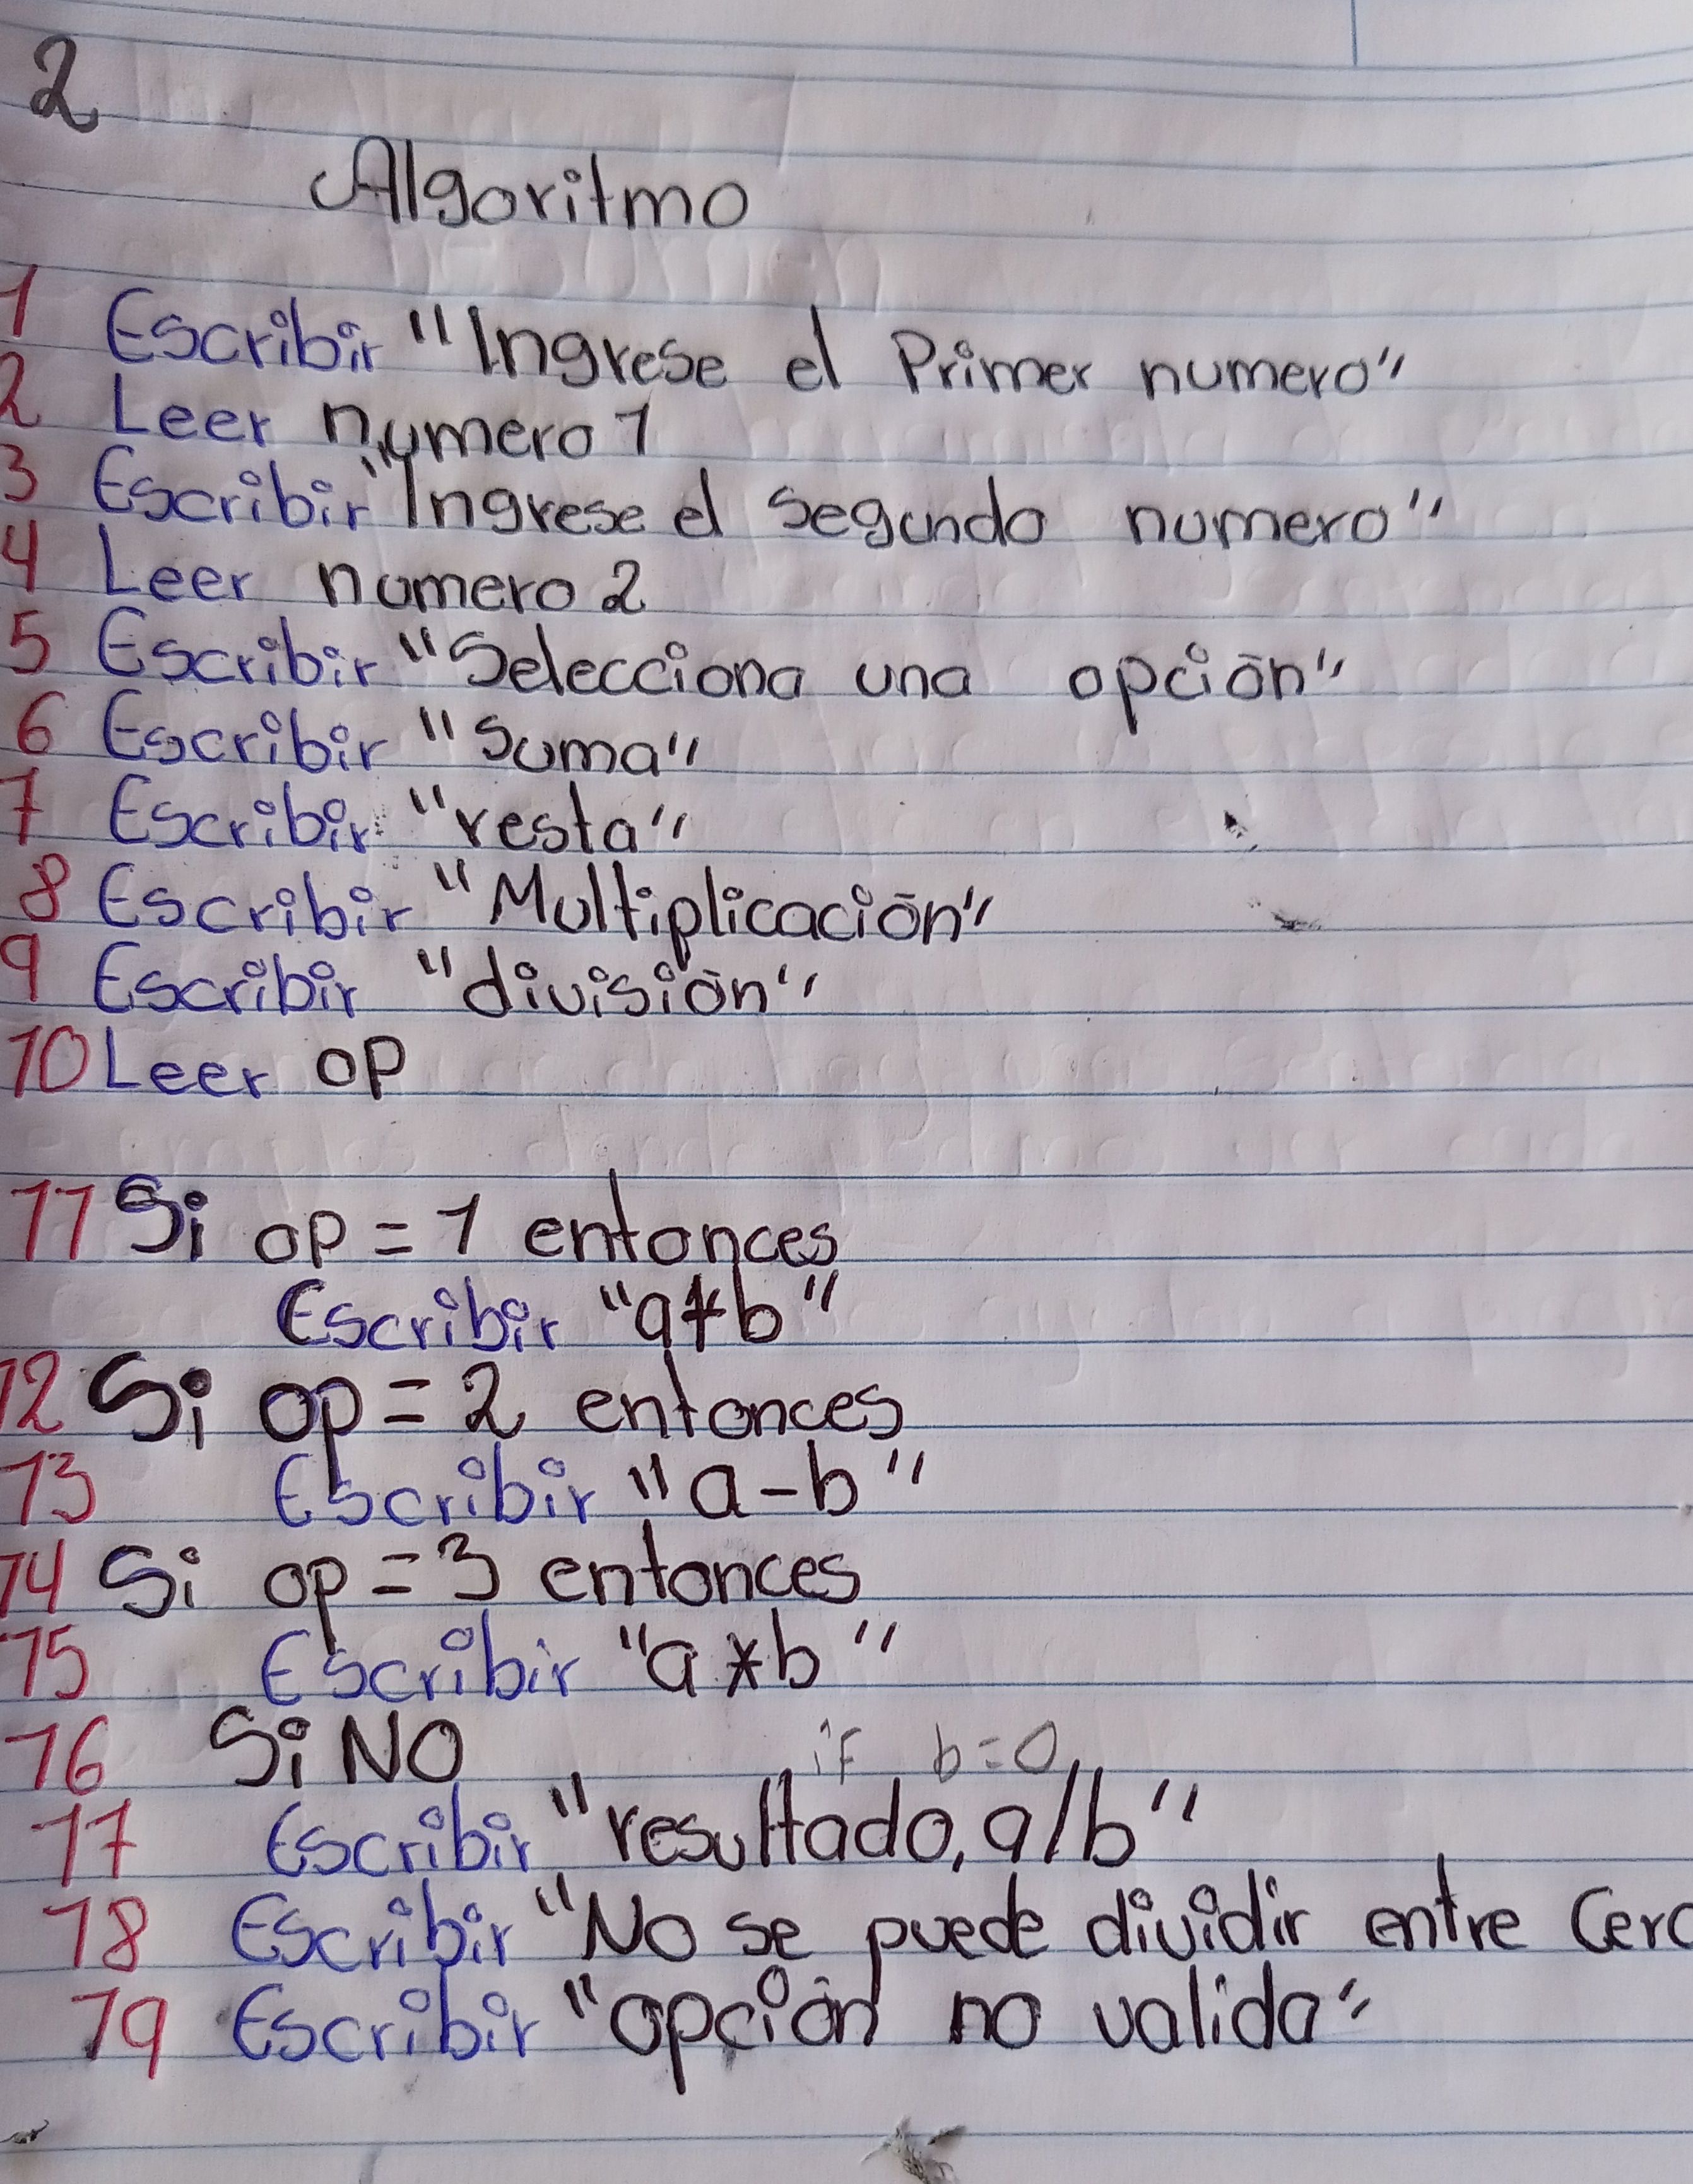 2
Algoritmo
1 Escribir "Ingrese el Primer numero"
2 Leer numero 1
3 Escribir "Ingrese el segundo numero"
4 Leer numero 2
5 Escribir "Selecciona una opción"
6 Escribir "Suma"
7 Escribir "resta"
8 Escribir "Multiplicación"
9 Escribir "división"
10 Leer op
11 Si op = 1 entonces
Escribir "a+b"
12 Si op = 2 entonces
13 Escribir "a-b"
14 Si op = 3 entonces
15 Escribir "a*b"
16 Si NO if b=0
17 Escribir "resultado, a/b"
18 Escribir "No se puede dividir entre Cero
19 Escribir "opción no valida"